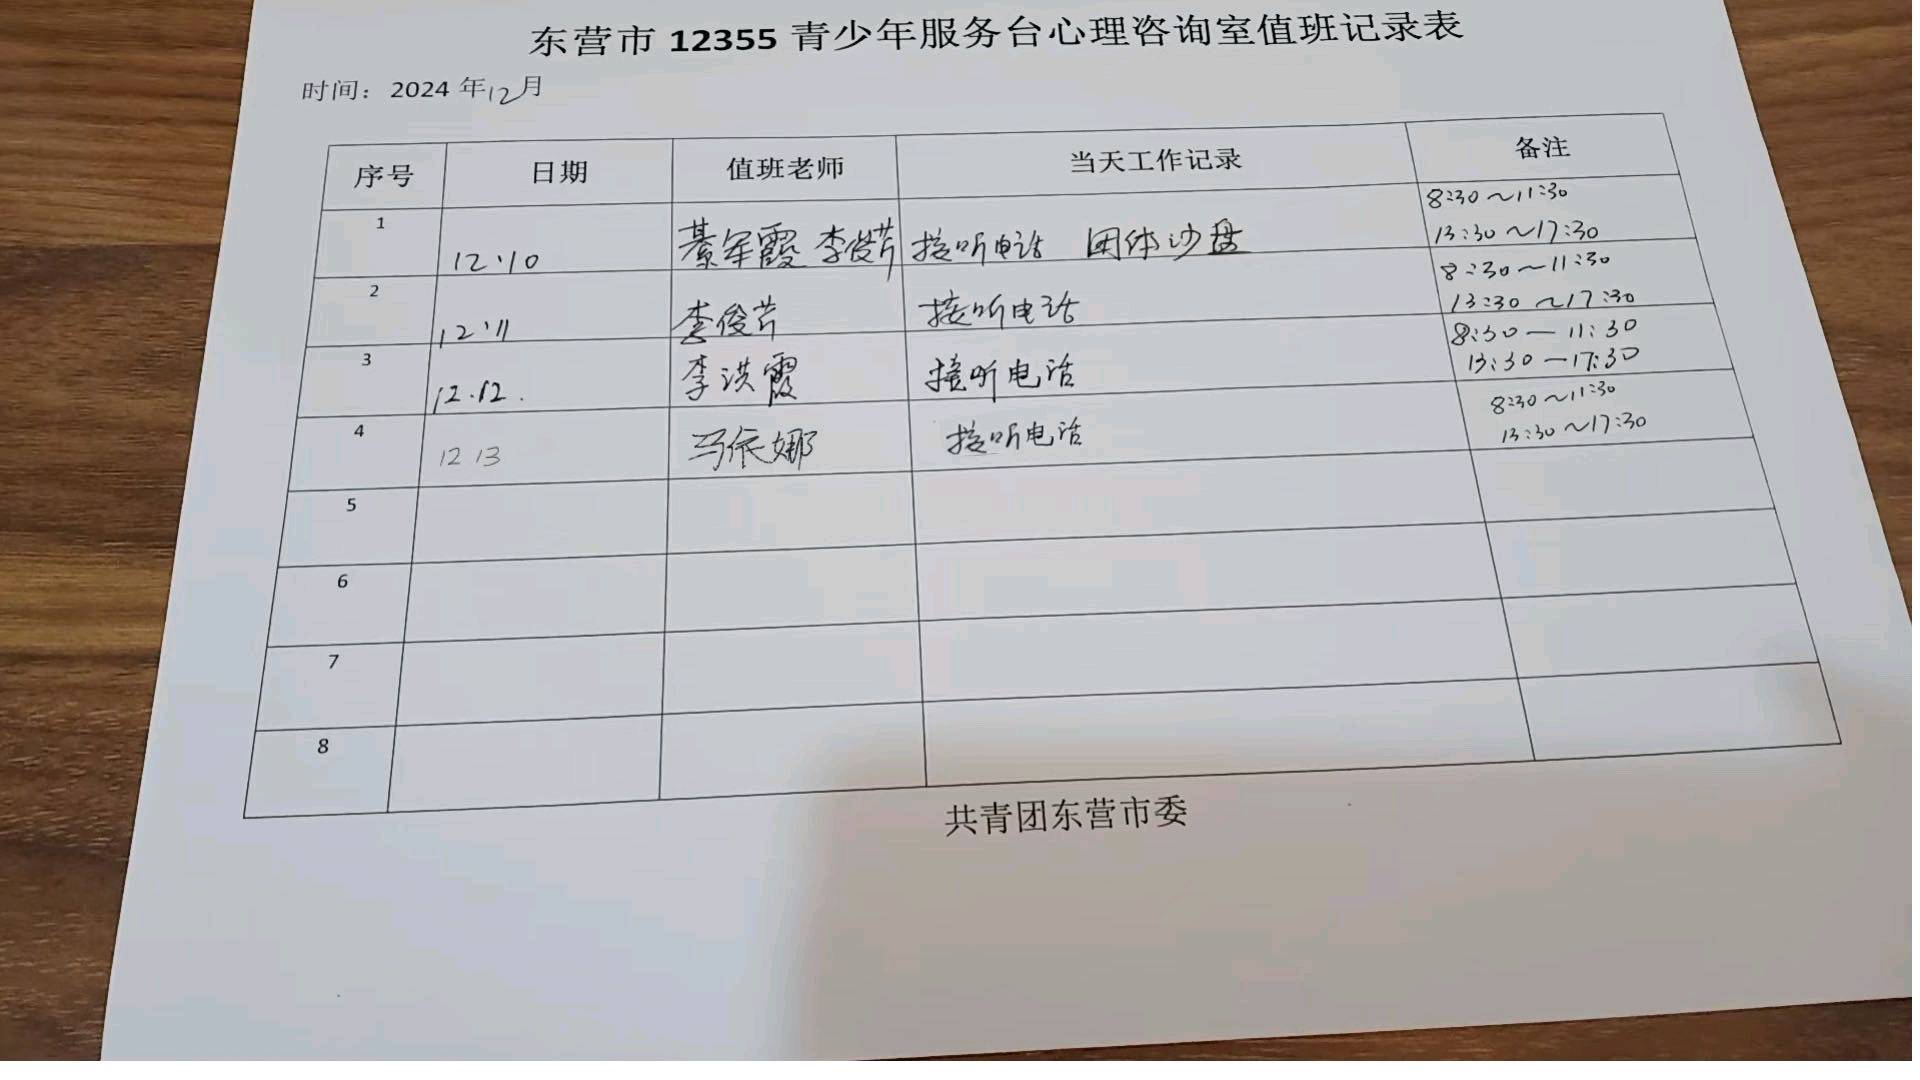 东营市 12355 青少年服务台心理咨询室值班记录表
时间：2024 年12月
序号 日期 值班老师 当天工作记录 备注
1 12.10 綦军霞 李俊芹 接听电话 团体沙盘 8:30～11:30
13:30～17:30
2 12.11 李俊芹 接听电话 8:30～11:30
13:30～17:30
3 12.12. 李洪霞 接听电话 8:30—11:30
13:30—17:30
4 12 13 马依娜 接听电话 8:30～11:30
13:30～17:30
5
6
7
8
共青团东营市委